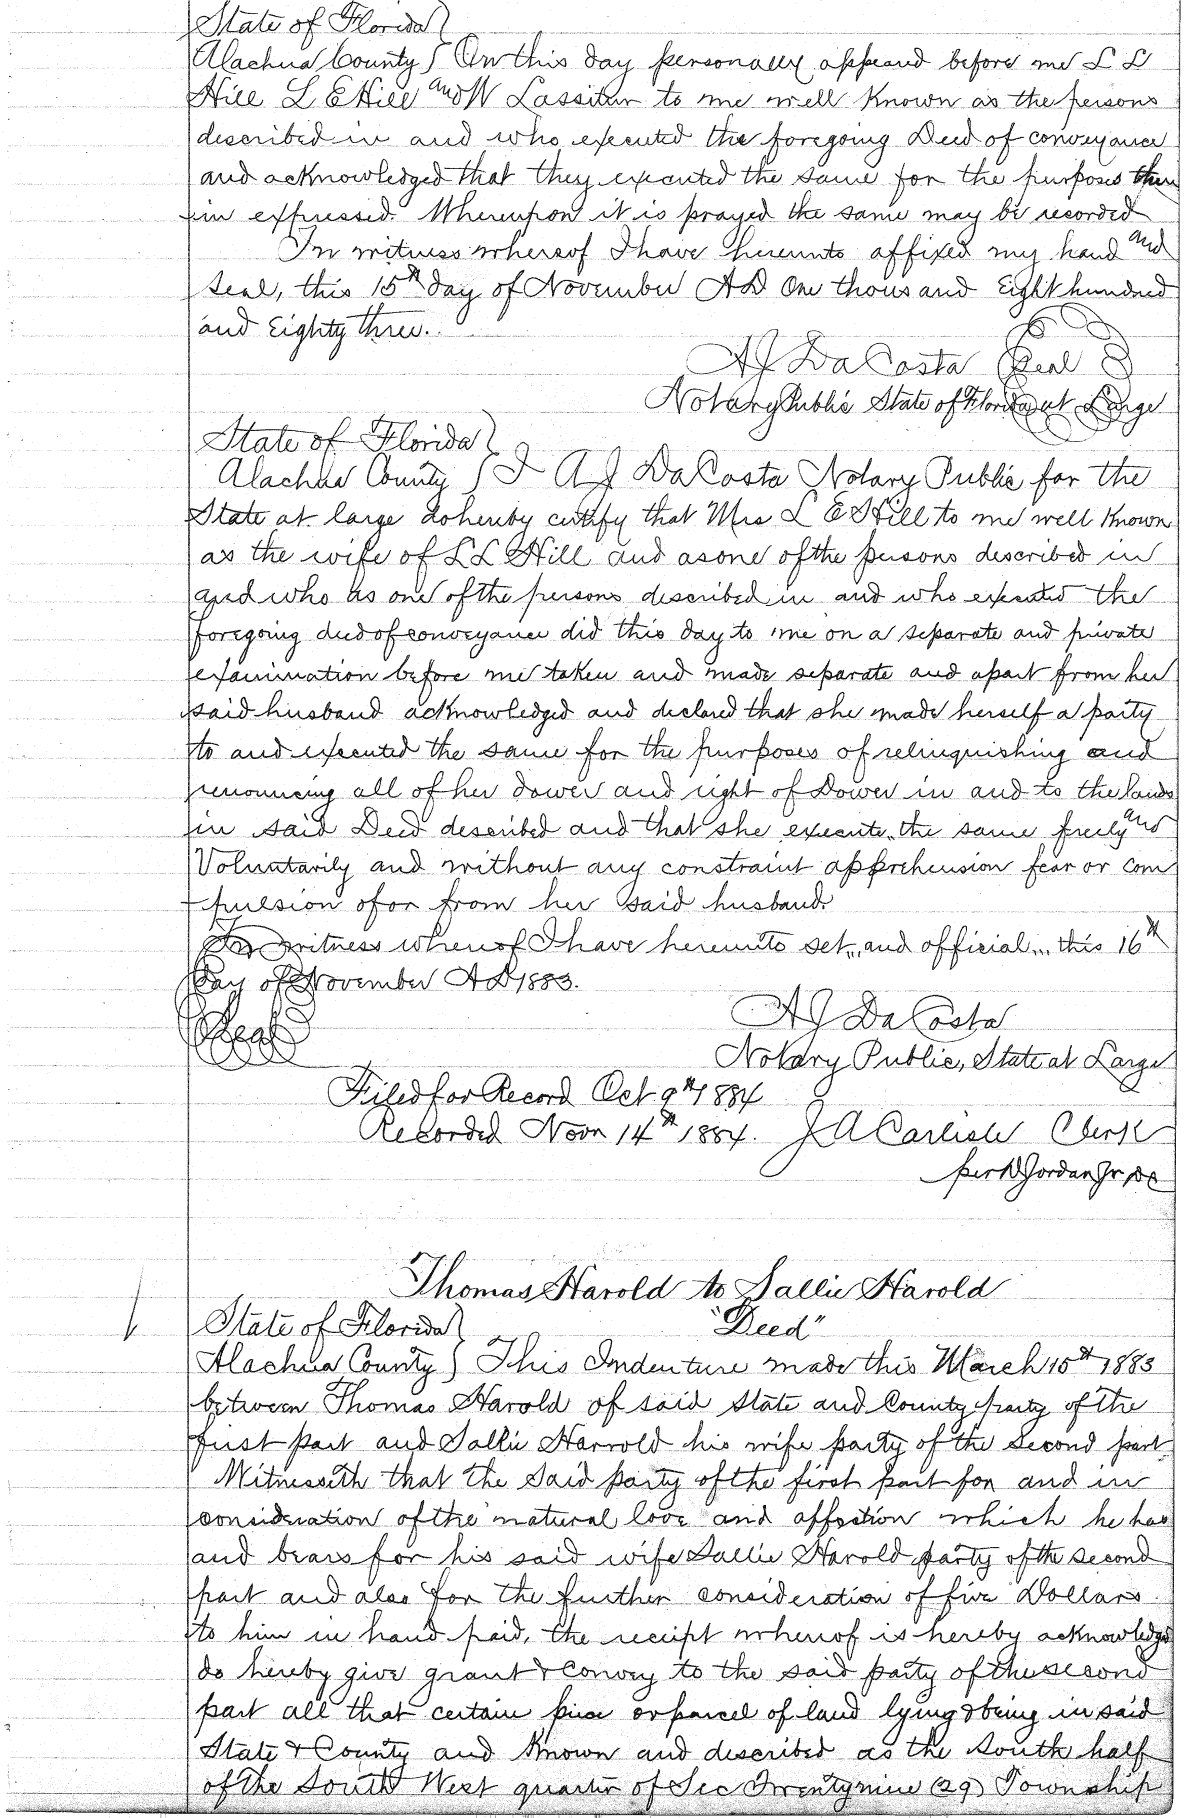 State of Florida
Alachua County } On this day personally appeared before me L L
Hill L E Hill and W Lassiter to me well known as the persons
described in and who executed the foregoing Deed of conveyance
and acknowledged that they executed the same for the purposes there
in expressed. Whereupon it is prayed the same may be recorded
In witness whereof I have hereunto affixed my hand and
seal, this 15th day of November AD One thousand Eight hundred
and Eighty three.
A J DaCosta Seal
Notary Public State of Florida at Large
State of Florida
Alachua County } I A J DaCosta Notary Public for the
State at large do hereby certify that Mrs L E Hill to me well known
as the wife of L L Hill and as one of the persons described in
and who as one of the persons described in and who executed the
foregoing deed of conveyance did this day to me on a separate and private
examination before me taken and made separate and apart from her
said husband acknowledged and declared that she made herself a party
to and executed the same for the purposes of relinquishing and
renouncing all of her dower and right of Dower in and to the lands
in said Deed described and that she execute the same freely and
Voluntarily and without any constraint apprehension fear or com
pulsion of or from her said husband.
In witness whereof I have hereunto set,, and official,,, this 16th
Day of November AD 1883.
Seal
A J DaCosta
Notary Public, State at Large
Filed for Record Oct 9th 1884
Recorded Novr 14th 1884. J A Carlisle Clerk
per Jordan Jr DC
Thomas Harold to Sallie Harold
"Deed"
State of Florida
Alachua County } This Indenture made this March 15th 1883
between Thomas Harold of said State and County party of the
first part and Sallie Harrold his wife party of the second part
Witnesseth that the said party of the first part for and in
consideration of the natural love and affection which he has
and bears for his said wife Sallie Harold party of the second
part and also for the further consideration of five Dollars
to him in hand paid, the receipt whereof is hereby acknowledged
do hereby give grant & convey to the said party of the second
part all that certain piece or parcel of land lying & being in said
State & County and known and described as the South half
of the South West quarter of Sec Twentynine (29) Township